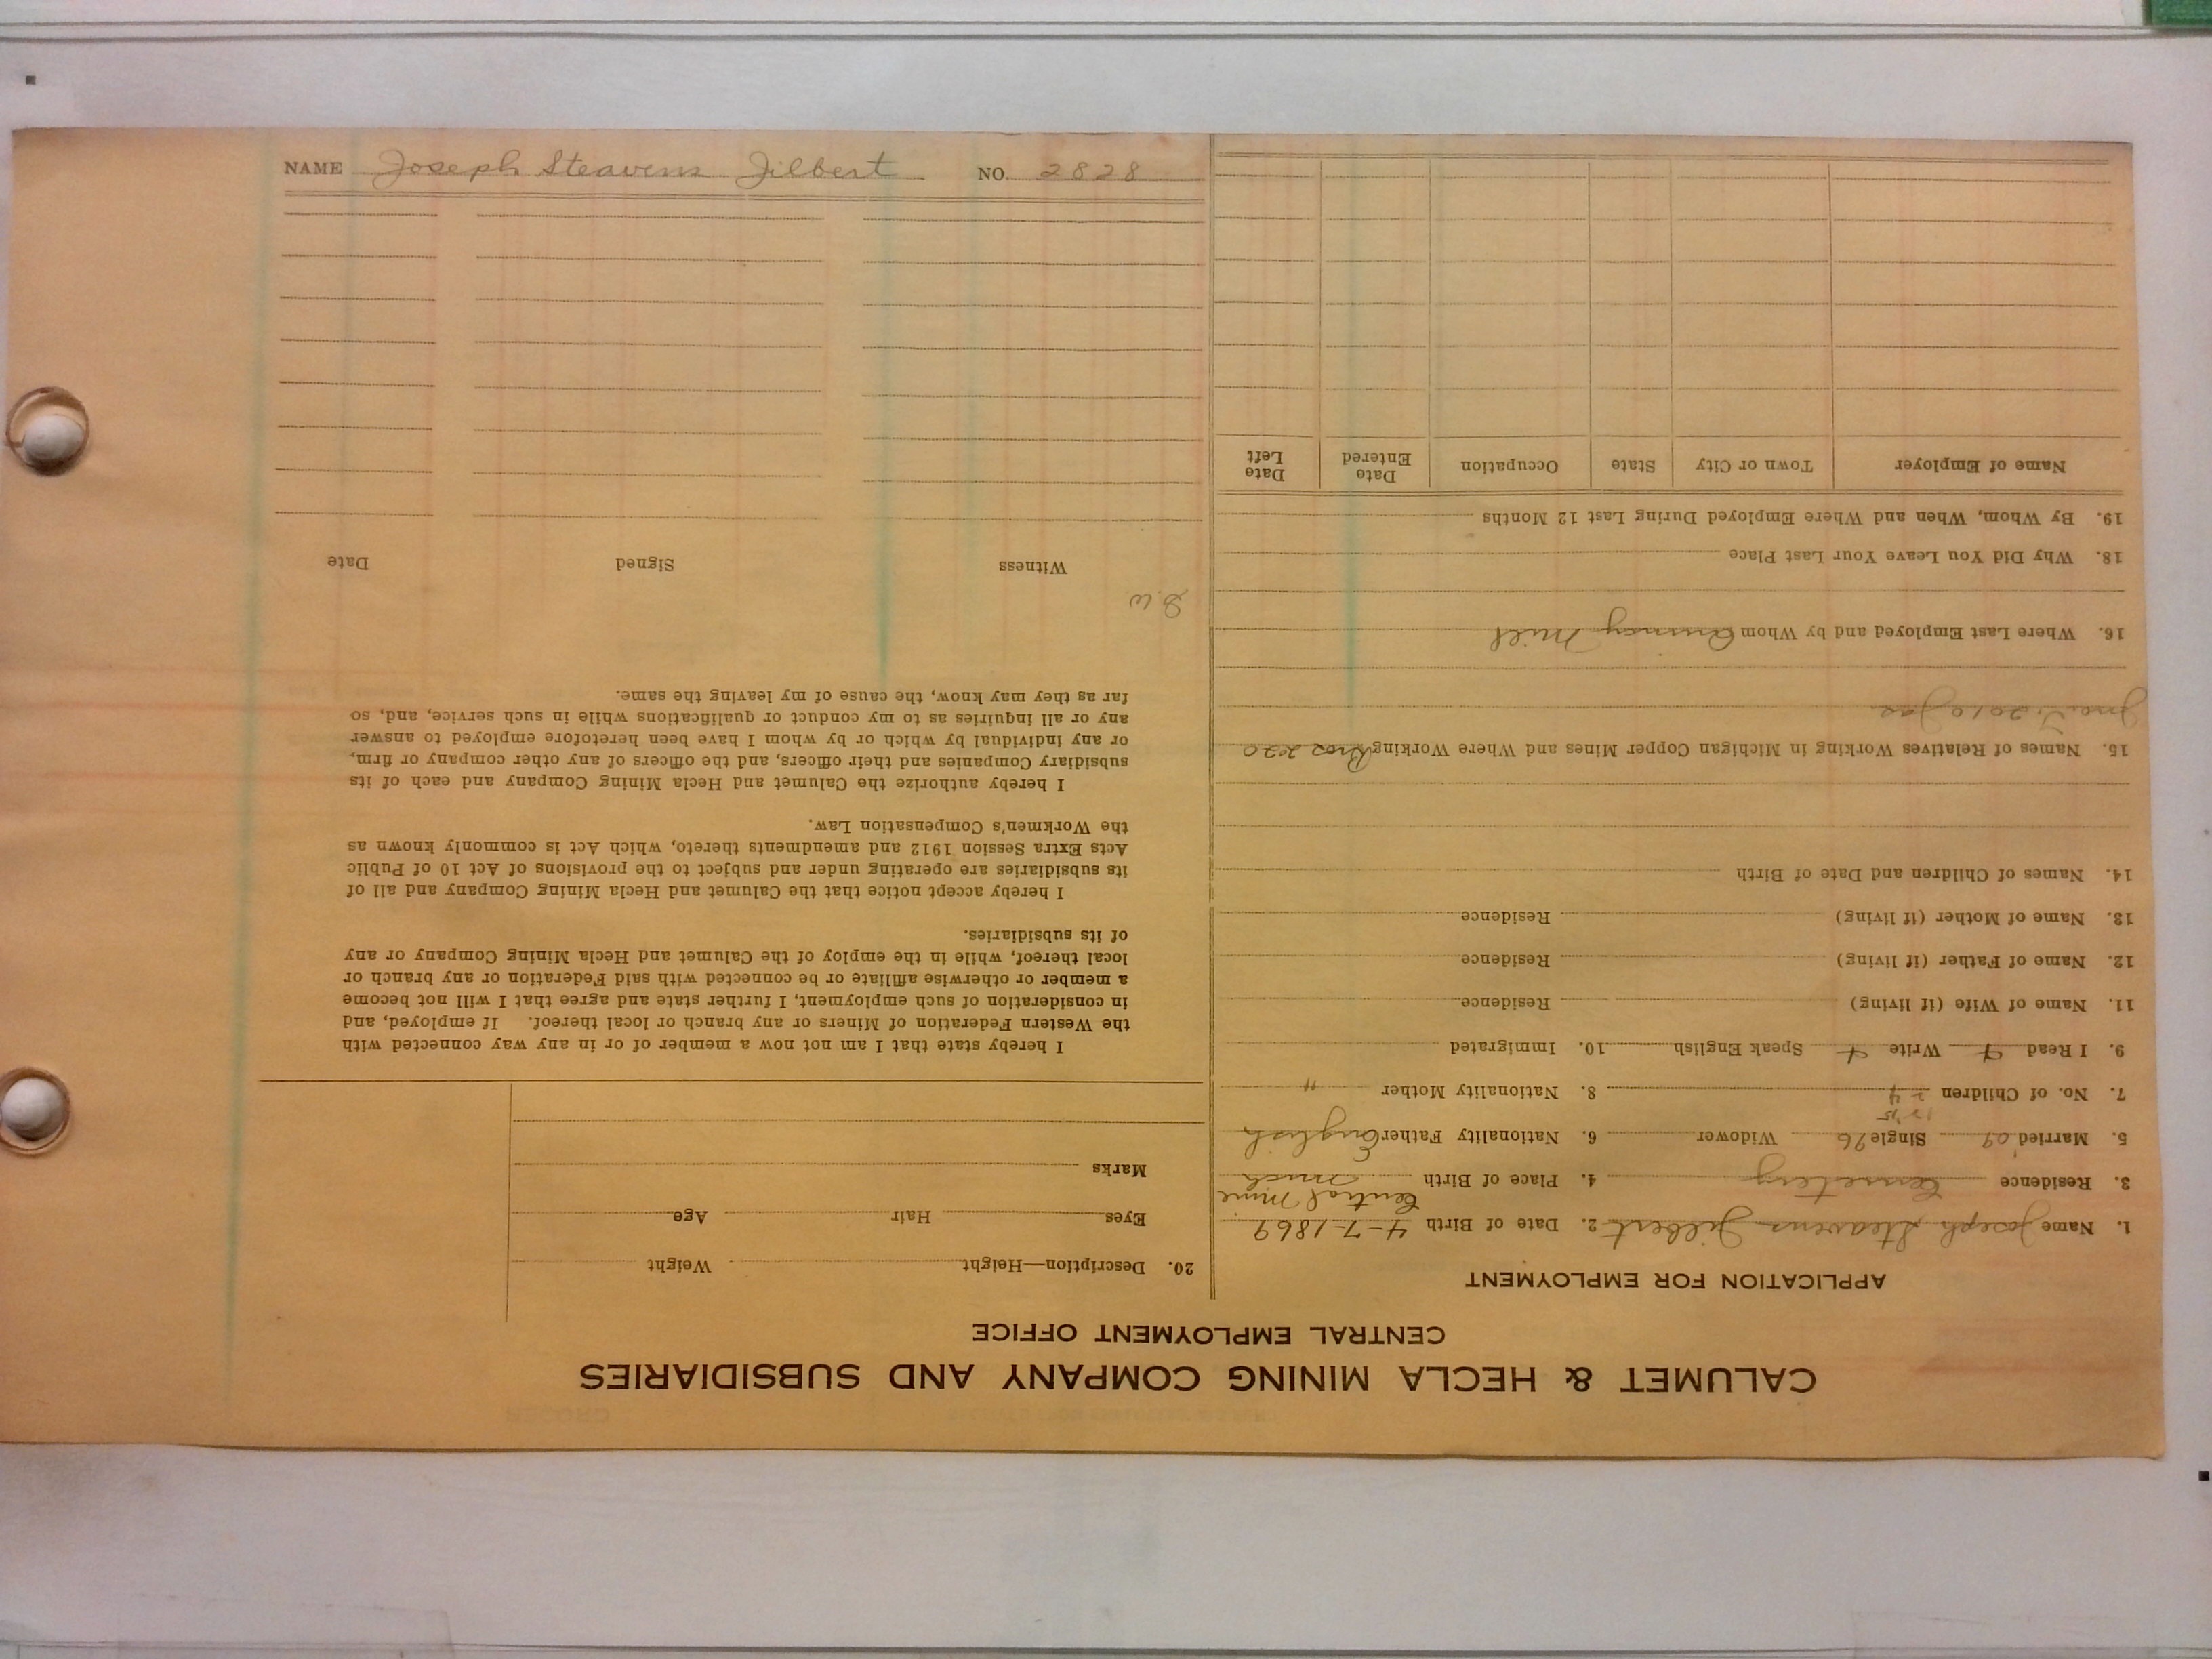 NAME Joseph Steavens Jilbert NO. 2828
CALUMET & HECLA MINING COMPANY AND SUBSIDIARIES
CENTRAL EMPLOYMENT OFFICE
APPLICATION FOR EMPLOYMENT
1. Name Joseph Steavens Jilbert 2. Date of Birth 4-7-1869
Central Mine
3. Residence Cemetery 4. Place of Birth Mich
5. Married '09 Single 96 Widower 6. Nationality Father English
7. No. of Children 8. Nationality Mother "
9. I Read Write Speak English 10. Immigrated
11. Name of Wife (if living) Residence
12. Name of Father (if living) Residence
13. Name of Mother (if living) Residence
14. Names of Children and Date of Birth
15. Names of Relatives Working in Michigan Copper Mines and Where Working Bros 2020
Jno. T. 2010 Jas.
16. Where Last Employed and by Whom Quincy Mill
18. Why Did You Leave Your Last Place
19. By Whom, When and Where Employed During Last 12 Months
Name of Employer Town or City State Occupation Date Entered Date Left
20. Description—Height Weight
Eyes Hair Age
Marks
I hereby state that I am not now a member of or in any way connected with
the Western Federation of Miners or any branch or local thereof. If employed, and
in consideration of such employment, I further state and agree that I will not become
a member or otherwise affiliate or be connected with said Federation or any branch or
local thereof, while in the employ of the Calumet and Hecla Mining Company or any
of its subsidiaries.
I hereby accept notice that the Calumet and Hecla Mining Company and all of
its subsidiaries are operating under and subject to the provisions of Act 10 of Public
Acts Extra Session 1912 and amendments thereto, which Act is commonly known as
the Workmen's Compensation Law.
I hereby authorize the Calumet and Hecla Mining Company and each of its
subsidiary Companies and their officers, and the officers of any other company or firm,
or any individual by which or by whom I have been heretofore employed to answer
any or all inquiries as to my conduct or qualifications while in such service, and, so
far as they may know, the cause of my leaving the same.
Witness Signed Date